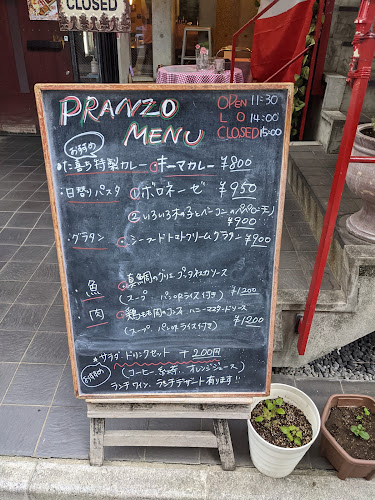 CLOSED
PRANZO MENU
OPEN 11:30
L O 14:00
CLOSED 15:00
特製カレー ①キーマカレー ¥800
・日替りパスタ ①ボロネーゼ ¥950
②いろいろ木の子とベーコンのペペロンチーノ
¥900
・グラタン シーフードトマトクリームグラタン ¥900
・魚 真鯛のグリエ プッタネスカソース
(スープ パンorライス付き) ¥1200
・肉 鶏もも肉のコンフィ ハニーマスタードソース
(スープ パンorライス付き) ¥1200
サラダ ドリンクセット +200円
(コーヒー、紅茶、オレンジジュース)
ランチワイン、ランチデザート有ります!!